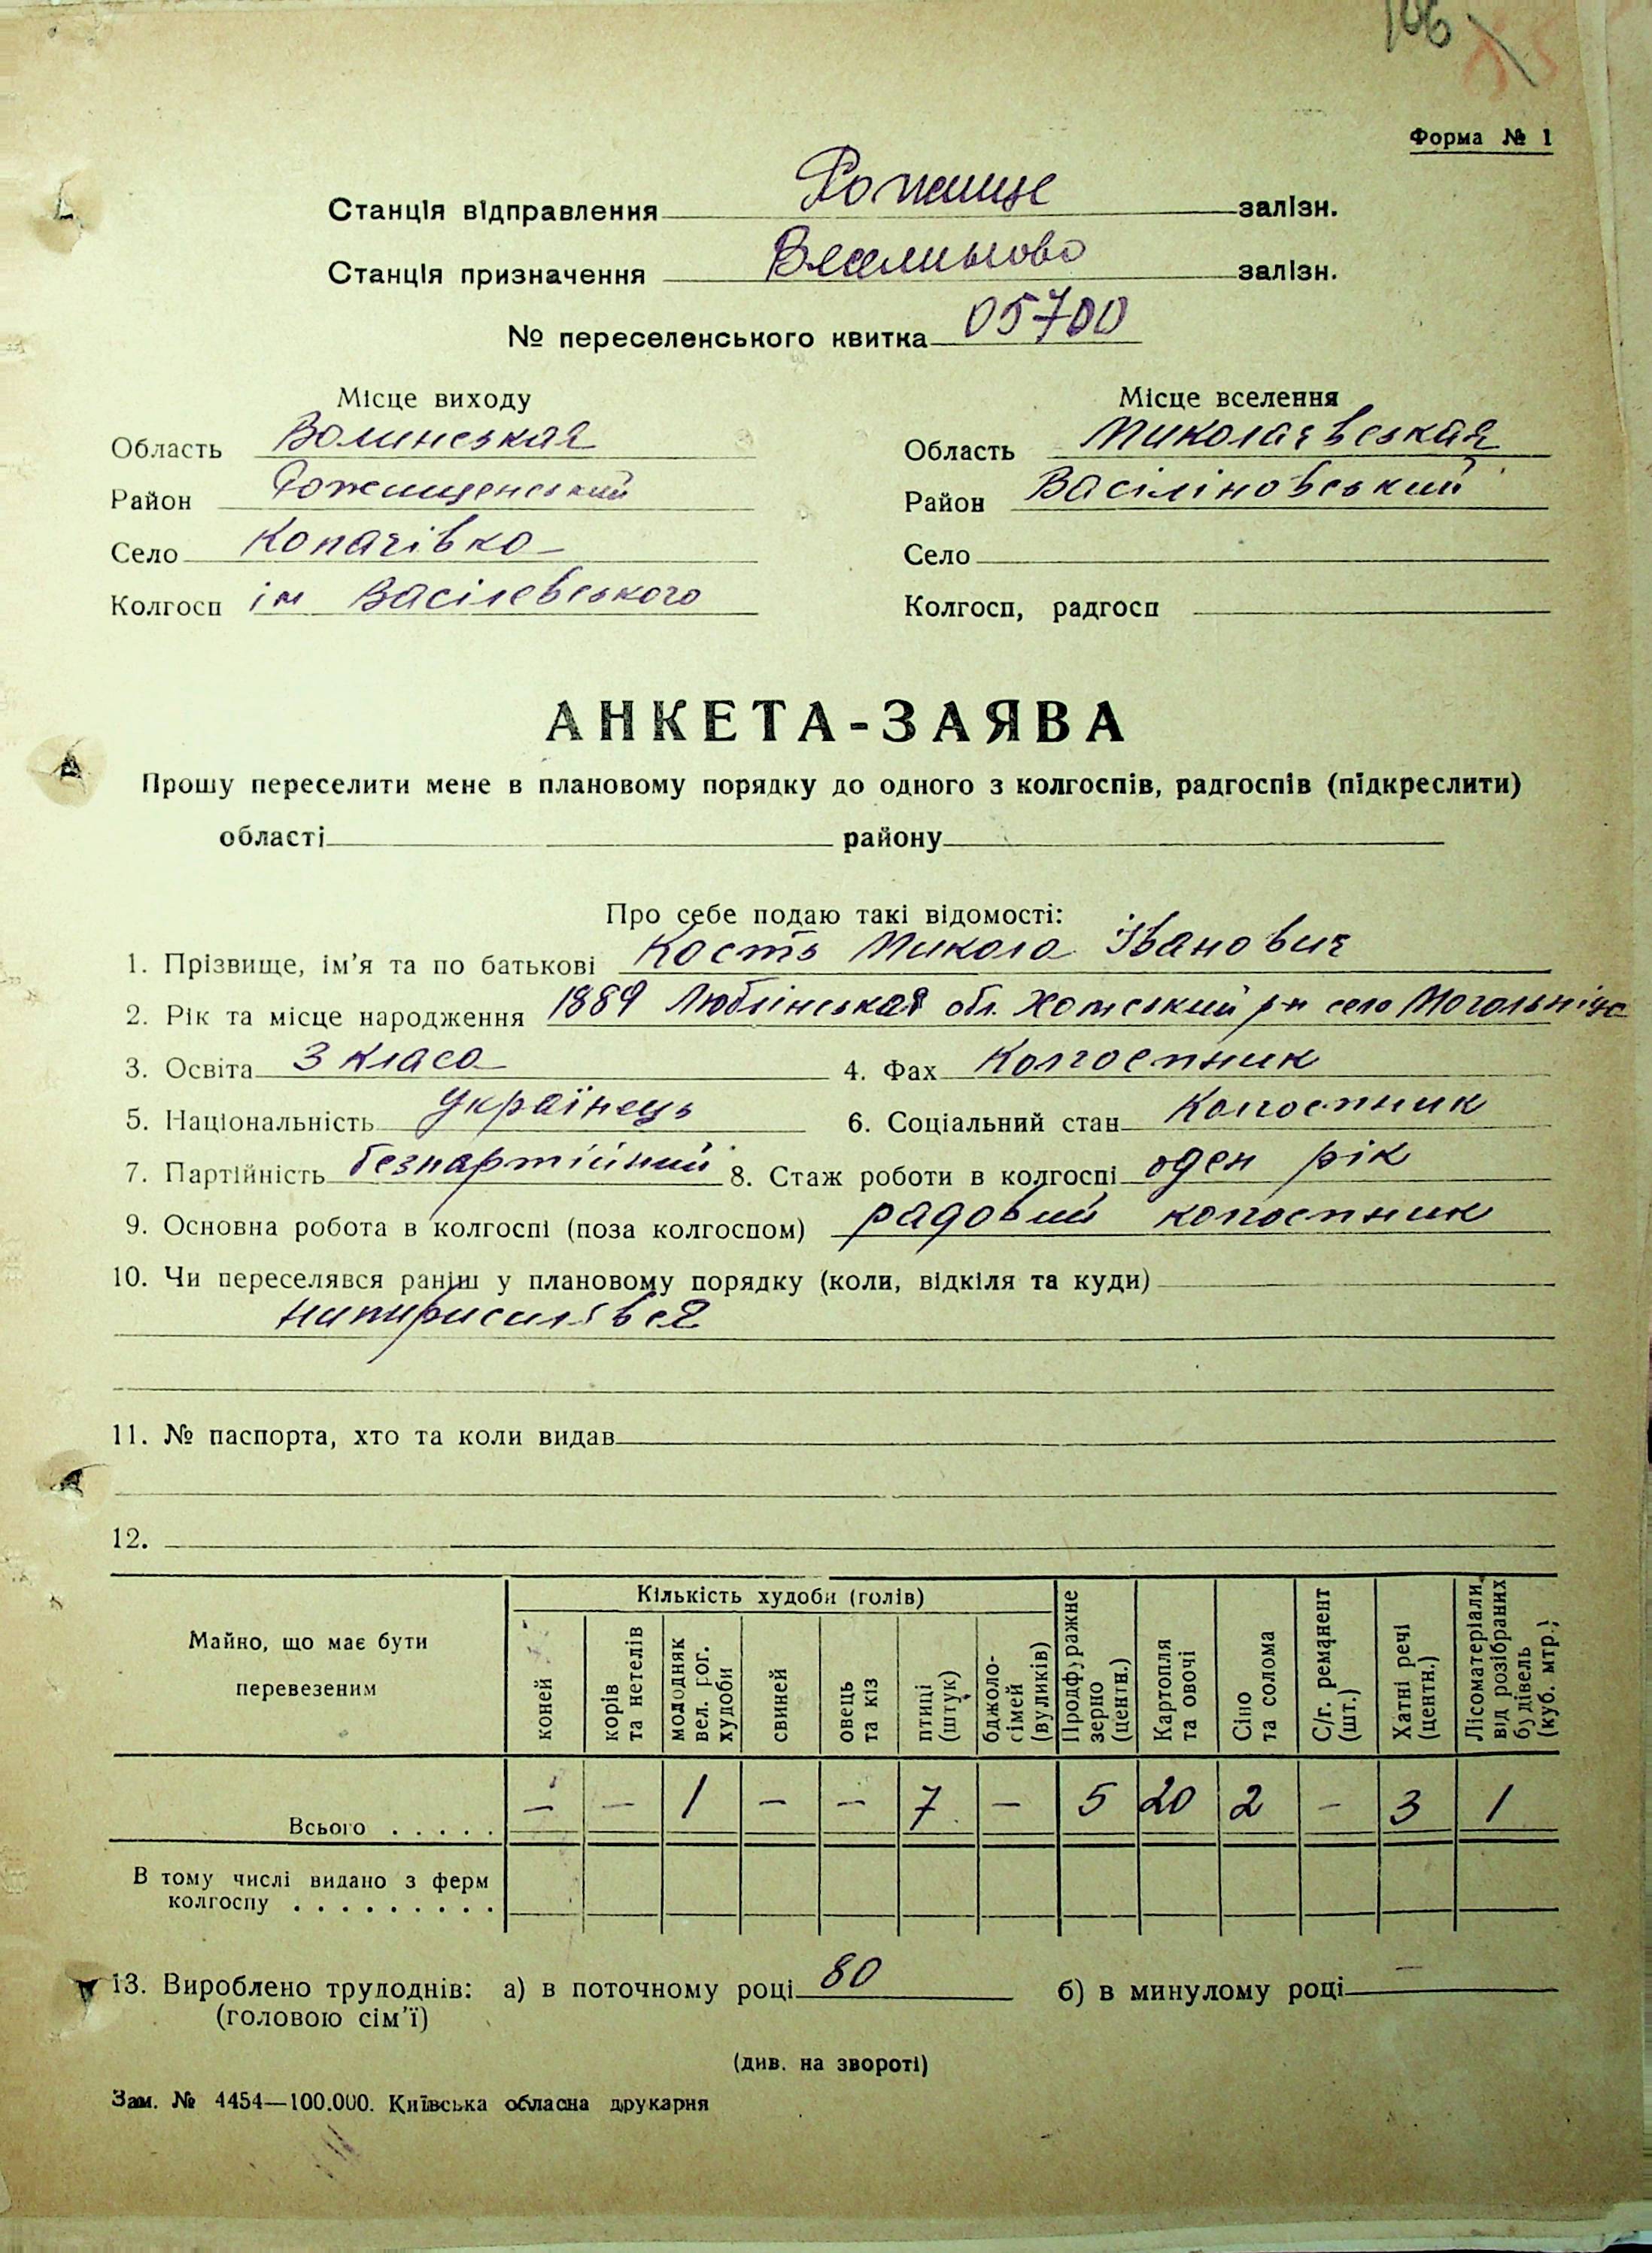 106
Форма № 1
Станція відправлення Рожище залізн.
Станція призначення Веселиново залізн.
№ переселенського квитка 05700
Місце виходу
Місце вселення
Область Волинськая
Область Миколаївськая
Район Рожищенський
Район Васіліновський
Село Копачівка
Село
Колгосп ім Васілевського
Колгосп, радгосп
АНКЕТА-ЗАЯВА
Прошу переселити мене в плановому порядку до одного з колгоспів, радгоспів (підкреслити)
області району
Про себе подаю такі відомості:
1. Прізвище, ім'я та по батькові Кость Микола Іванович
2. Рік та місце народження 1889 Люблінськая обл. Холмський р-н село Могольніца
3. Освіта 3 класа 4. Фах Колгоспник
5. Національність Українець 6. Соціальний стан Колгоспник
7. Партійність безпартійний 8. Стаж роботи в колгоспі оден рік
9. Основна робота в колгоспі (поза колгоспом) радовий колгоспник
10. Чи переселявся раніш у плановому порядку (коли, відкіля та куди)
нипирисилявся
11. № паспорта, хто та коли видав
12.
Майно, що має бути перевезеним
Кількість худоби (голів)
коней
корів та нетелів
молодняк вел. рог. худоби
свиней
овець та кіз
птиці (штук)
бджоло-сімей (вуликів)
Продфуражне зерно (центн.)
Картопля та овочі
Сіно та солома
С/г. реманент (шт.)
Хатні речі (центн.)
Лісоматеріали від розібраних будівель (куб. мтр.)
Всього . . . . . — — 1 — — 7 — 5 20 2 — 3 1
В тому числі видано з ферм
колгоспу . . . . . . . . .
13. Вироблено трудоднів: а) в поточному році 80 б) в минулому році —
(головою сім'ї)
(див. на звороті)
Зам. № 4454—100.000. Київська обласна друкарня